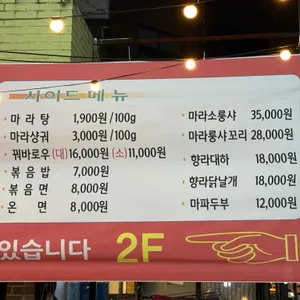 사이드 메뉴
• 마 라 탕 1,900원/100g
• 마라샹궈 3,000원/100g
• 꿔바로우 (대)16,000원 (소)11,000원
• 볶 음 밥 7,000원
• 볶 음 면 8,000원
• 온 면 8,000원
• 마라소룽샤 35,000원
• 마라룽샤꼬리 28,000원
• 향라대하 18,000원
• 향라닭날개 18,000원
• 마파두부 12,000원
있습니다 2F